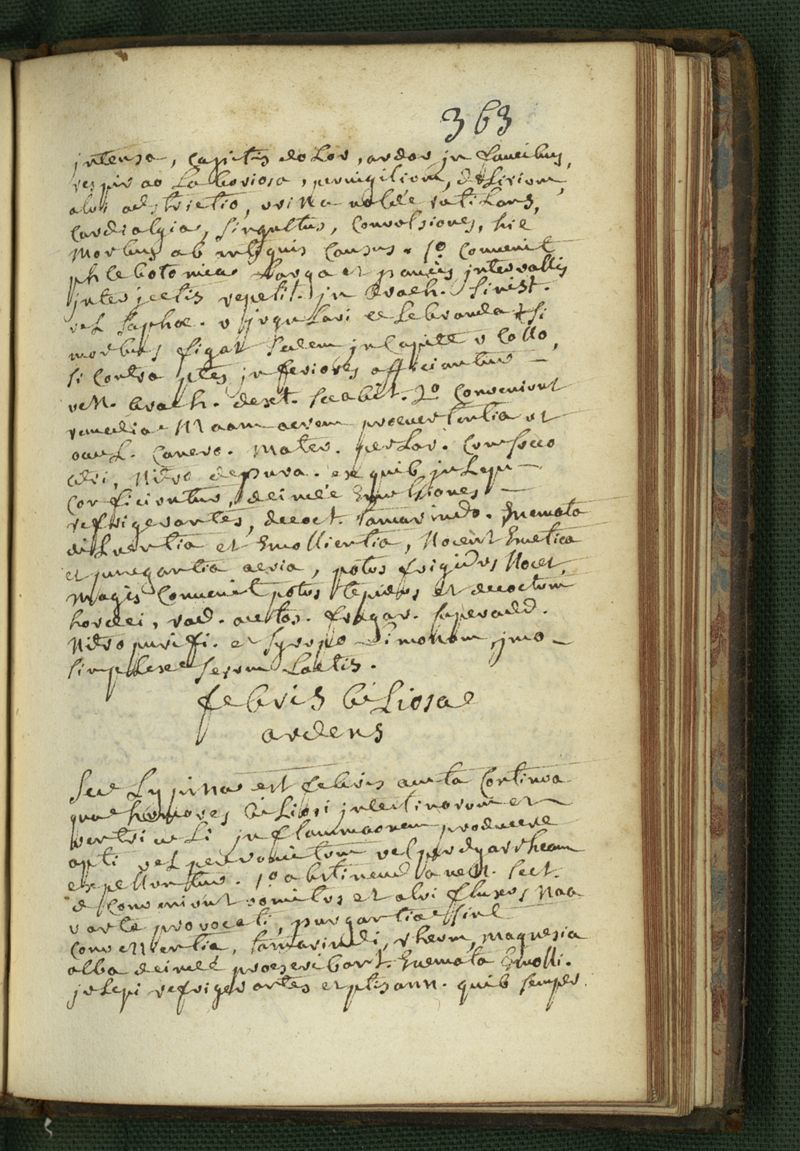 363
intensa, capitis dolor, ardor in faucibus,
respirao Laboriosa, pervigilium, delirium,
alvi adstrictio, vrina valde rutilans,
Cardialgia, singultus, Convulsiones, hic
Morbus ab reliquis Causus. 1º Convenit
phlebotomia Larga et paucis intervallis
interjectis repetit. in brach. sinist.
vel saphae. v jugulari celebranda si
morbus figat sedem in capite v collo,
si contra ptes inferiores afficiantur
ven. brach. dext. 2º Conveniunt
remedia Maam acrem
ocul. Cancr. Mater. perlar.
Nitro depura. ex quib juLepi
Conficiuntur, deinde Emulsiones
refrigerantes, decoct. tamarindo. Enemata
diLuentia et Emollientia, Nocent Emetica
et purgantia acria, potus frigidus Nocet,
Magis Convenit potus tepidus et decoctum
hordei, rad. acetos. fragar. superadd.
Nitro purifi. et syrupo Limonum, imo
simplex serum Lactis.
febris biLiosa
ardens
seu Lypiria est febris acuta Continua
qua humores biLiosi intestinorum et
ventricuLi inflammaonem producere
apti vel per vomitum vel per dyarrheam
expelluntur. 1º abstinend a ven. sect.
Conveniunt vomitus et alvi fluxus Naa
v arte provocati, purgantia sint
Convenientia, tamarindi, rheum, magnesia
alba deinde praescribant. Enemata Emolli.
juLepi refrigerantes et ptisann. quib semper